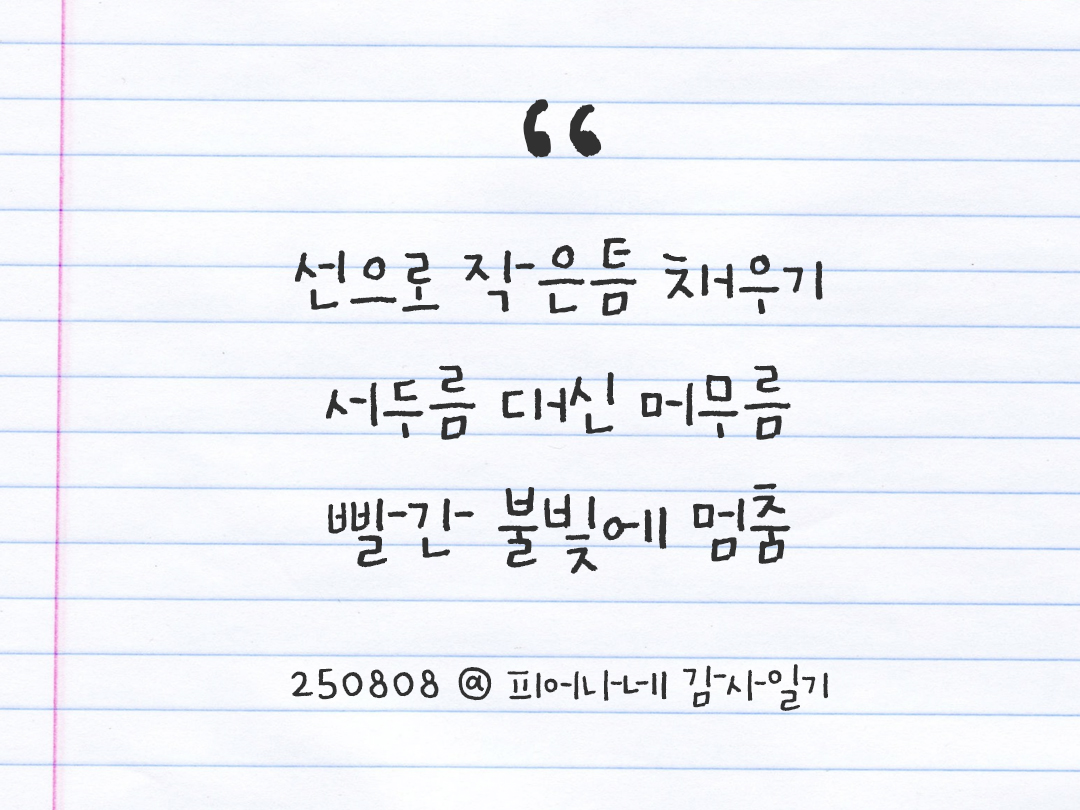 “
선으로 작은틈 채우기
서두름 대신 머무름
빨간 불빛에 멈춤
250808 @ 피어나네 감사일기